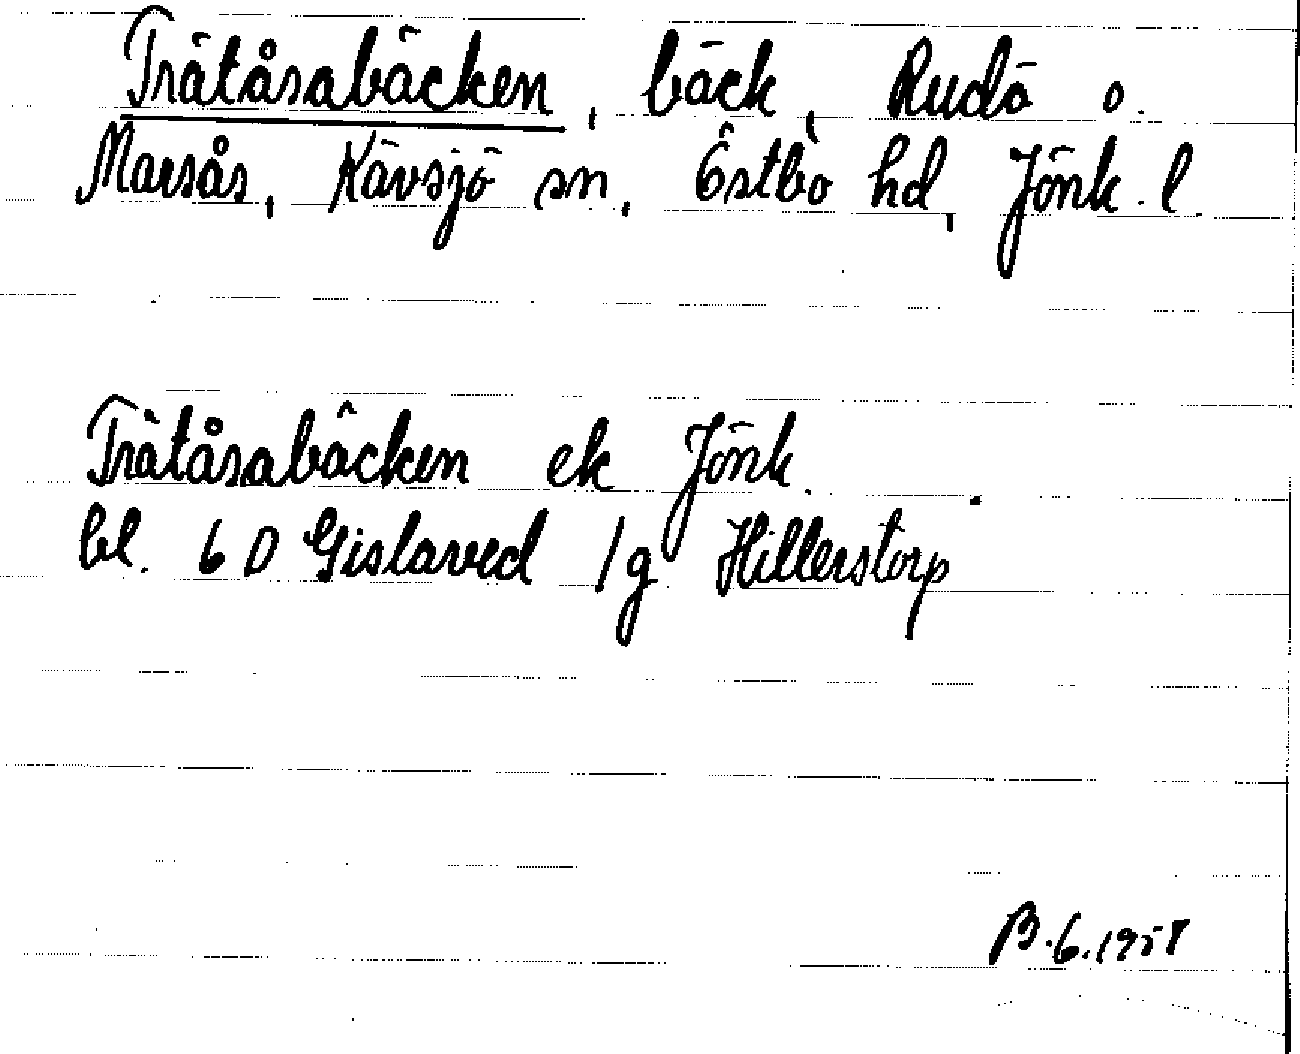 Trätåsabäcken, bäck, Rudö o.
Marsås, Kävsjö sn, Östbo hd, Jönk. l.
Trätåsabäcken ek Jönk.
bl. 6 D Gislaved 1 g Hillerstorp
B.6.1958